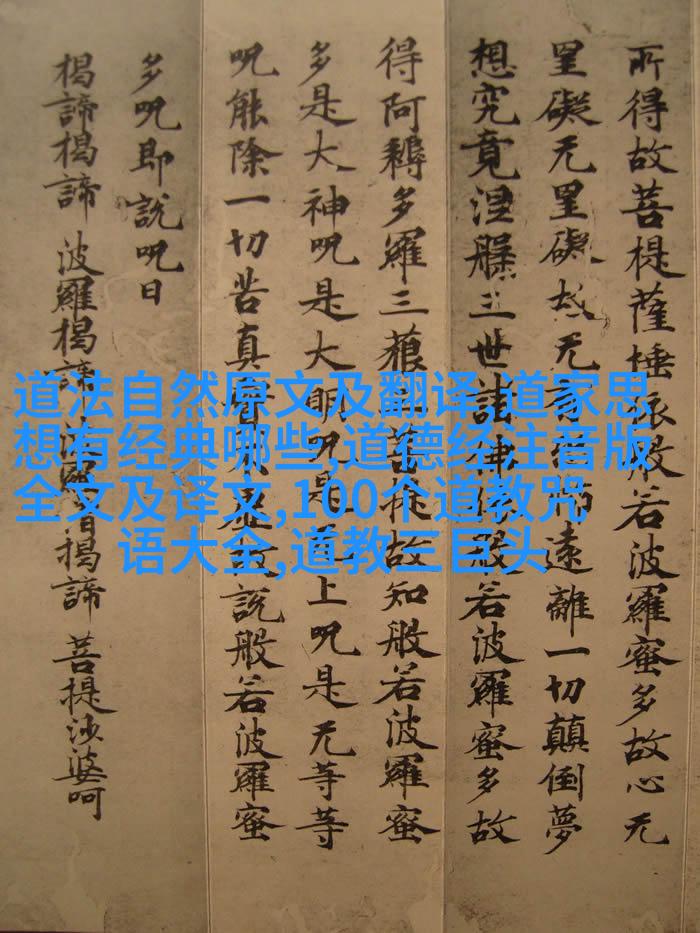 所得故菩提薩埵依般若波羅蜜多故心无
罣礙无罣礙故无有恐怖遠離一切顛倒夢
想究竟涅槃三世諸佛依般若波羅蜜多故
得阿耨多羅三藐三菩提故知般若波羅蜜
多是大神呪是大明呪是无上呪是无等等
呪能除一切苦真實不虛故說般若波羅蜜
多呪即說呪曰
揭諦揭諦 波羅揭諦 波羅僧揭諦 菩提沙婆呵
道法自然原文及翻译,道家思
想有经典哪些,道德经注音版
全文及译文,100个道教咒
语大全,道教三巨头